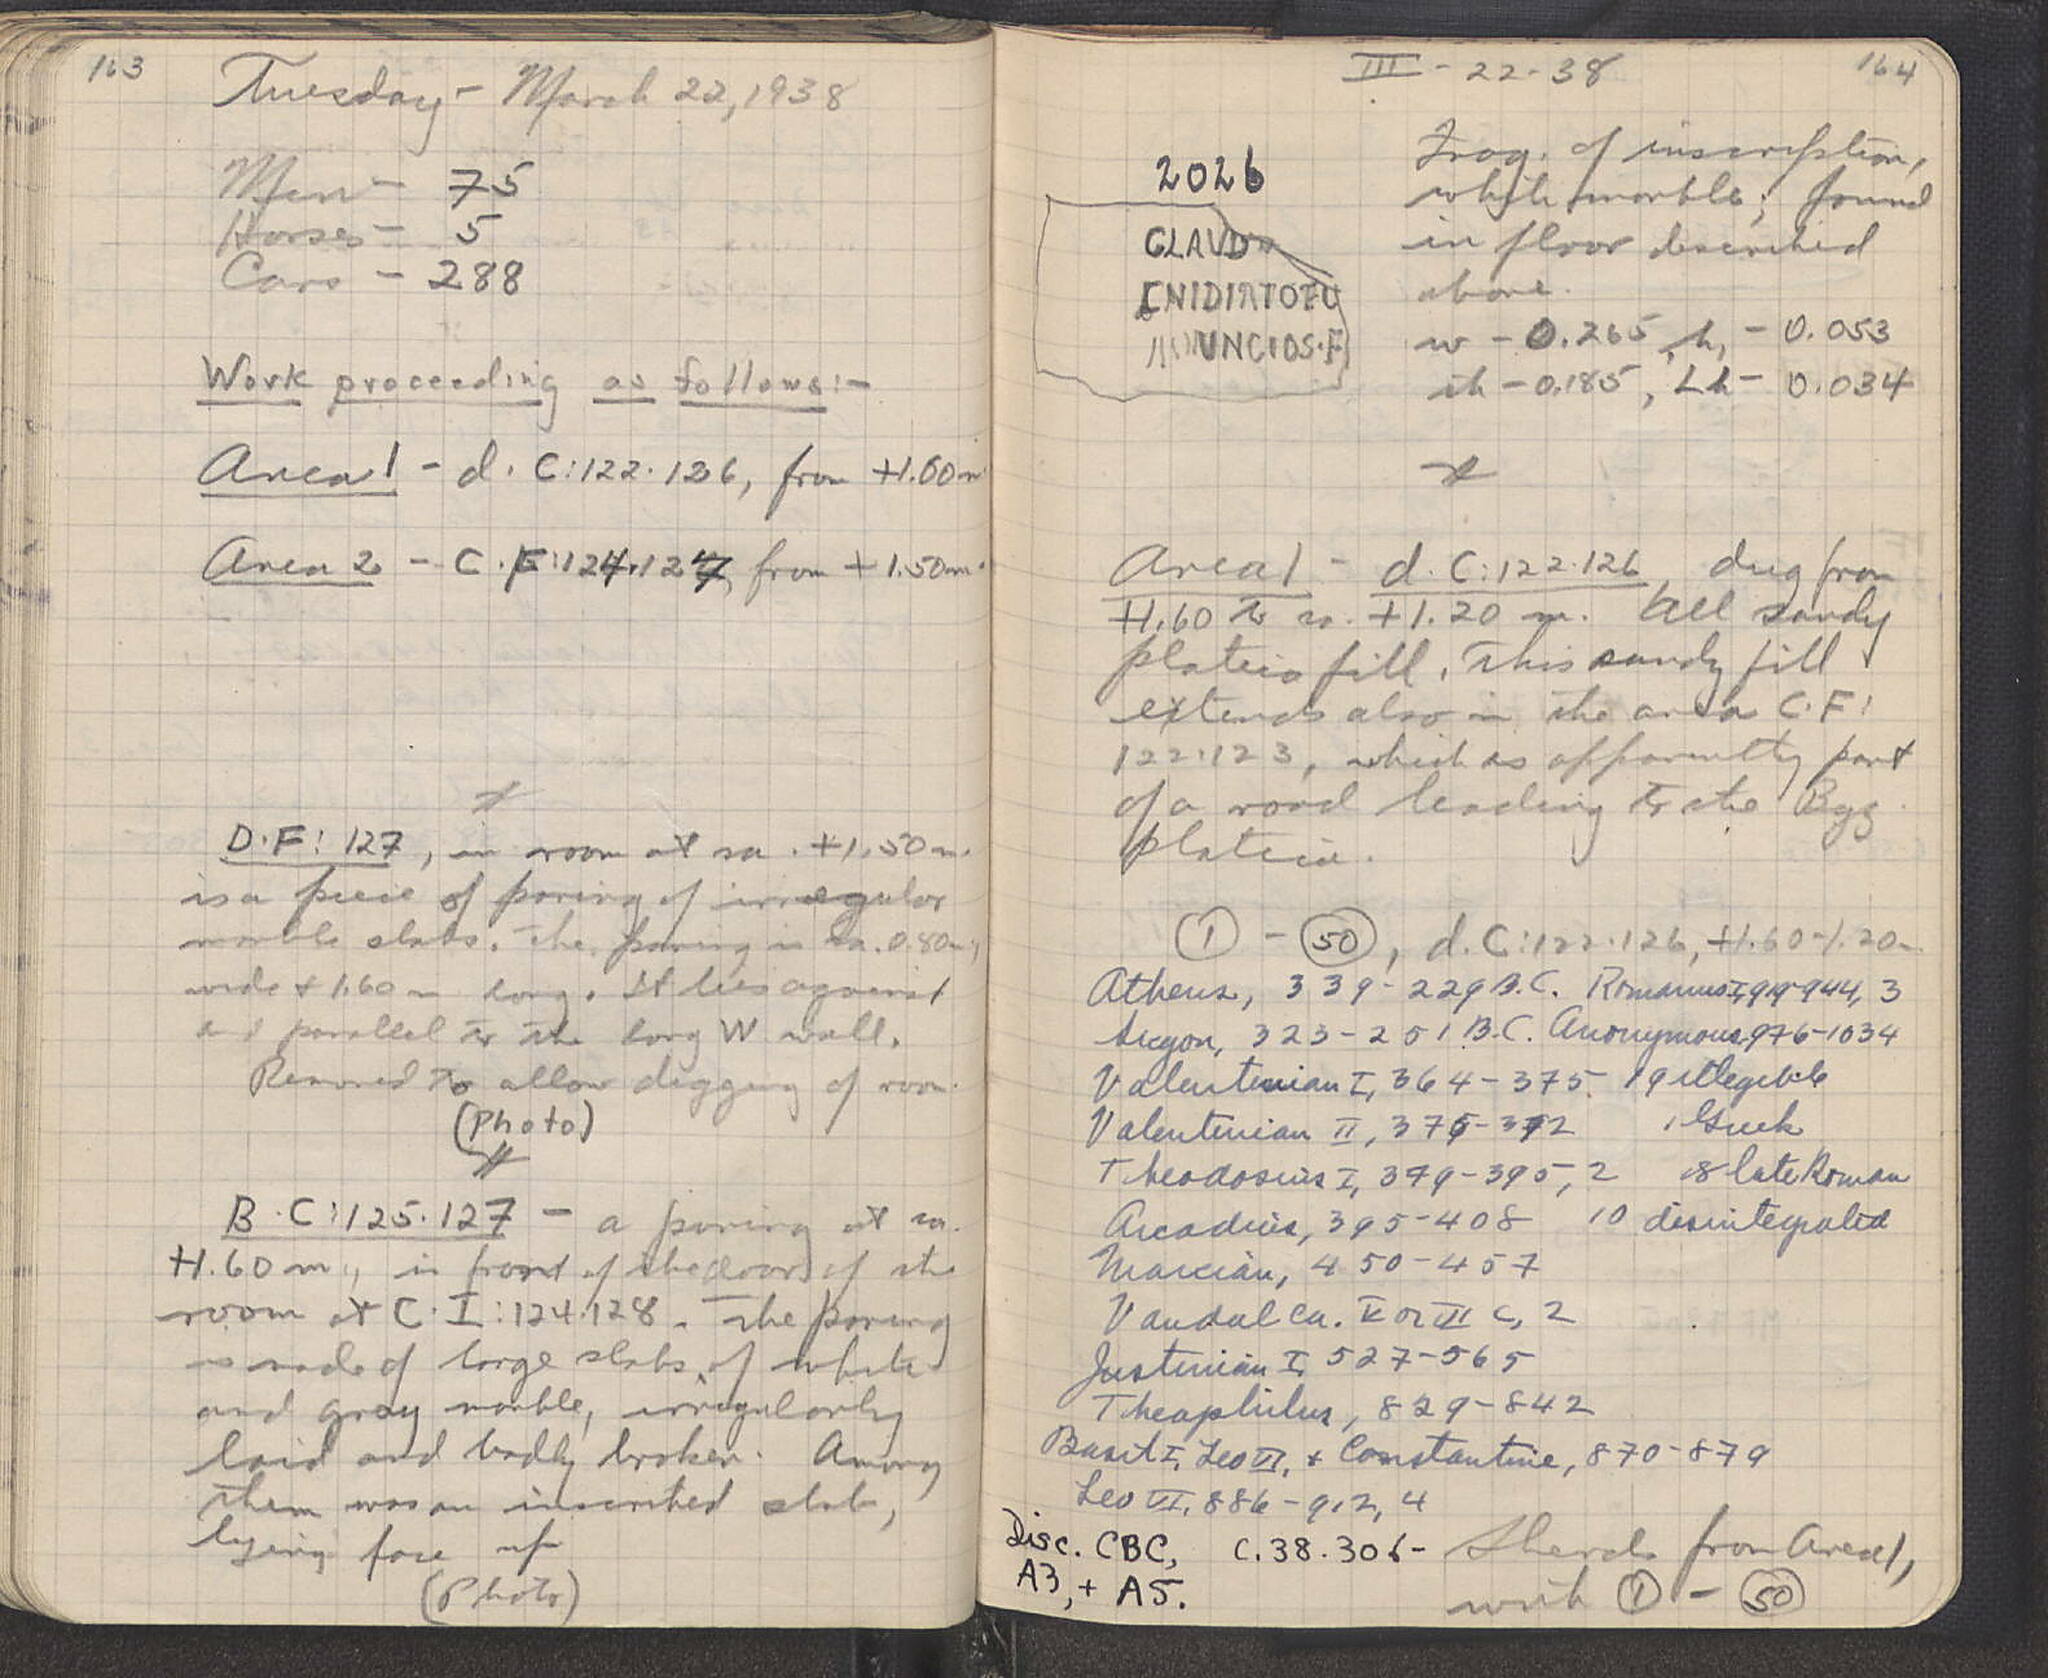 163
Tuesday - March 22, 1938
Men - 75
Horses - 5
Cars - 288
Work proceeding as follows:-
Area 1 - d. C:122.126, from +1.60 m
Area 2 - C.F:124.127, from +1.50 m.
D.F: 127, in room at ca. +1.50 m.
is a piece of paving of irregular
marble slabs. The paving is ca. 0.80 m,
wide + 1.60 m long. It lies against
and parallel to the long W wall.
Removed to allow digging of room.
(Photo)
B.C:125.127 - a paving at ca.
+1.60 m., in front of the doors of the
room at C.I:124.128. The paving
is made of large slabs of white
and gray marble, irregularly
laid and badly broken. Among
them was an inscribed slab,
lying face up
(Photo)
III - 22-38
164
2026
CLAVD
CNIDIATOFU
UNCIOS.F
Frag. of inscription,
white marble; found
in floor described
above.
w - 0.265, h, - 0.053
th - 0.185, Lh - 0.034
Area 1 - d. C:122.126, dug from
+1.60 to ca. +1.20 m. All sandy
plateia fill. This sandy fill
extends also in the area C.F:
122.123, which is apparently part
of a road leading to the Byz.
plateia.
1 - 50, d. C:122.126, +1.60-1.20 m
Athens, 339-229 B.C. Romanus I, 919-944, 3
Sicyon, 323-251 B.C. Anonymous 976-1034
Valentinian I, 364-375 19 illegible
Valentinian II, 375-392 1 Greek
Theodosius I, 379-395, 2 8 late Roman
Arcadius, 395-408 10 disintegrated
Marcian, 450-457
Vandal ca. V or VI c, 2
Justinian I, 527-565
Theophilus, 829-842
Basil I, Leo VI, + Constantine, 870-879
Leo VI, 886-912, 4
Disc. CBC, C.38.306- Sherds from Area 1,
A3, + A5. with 1 - 50